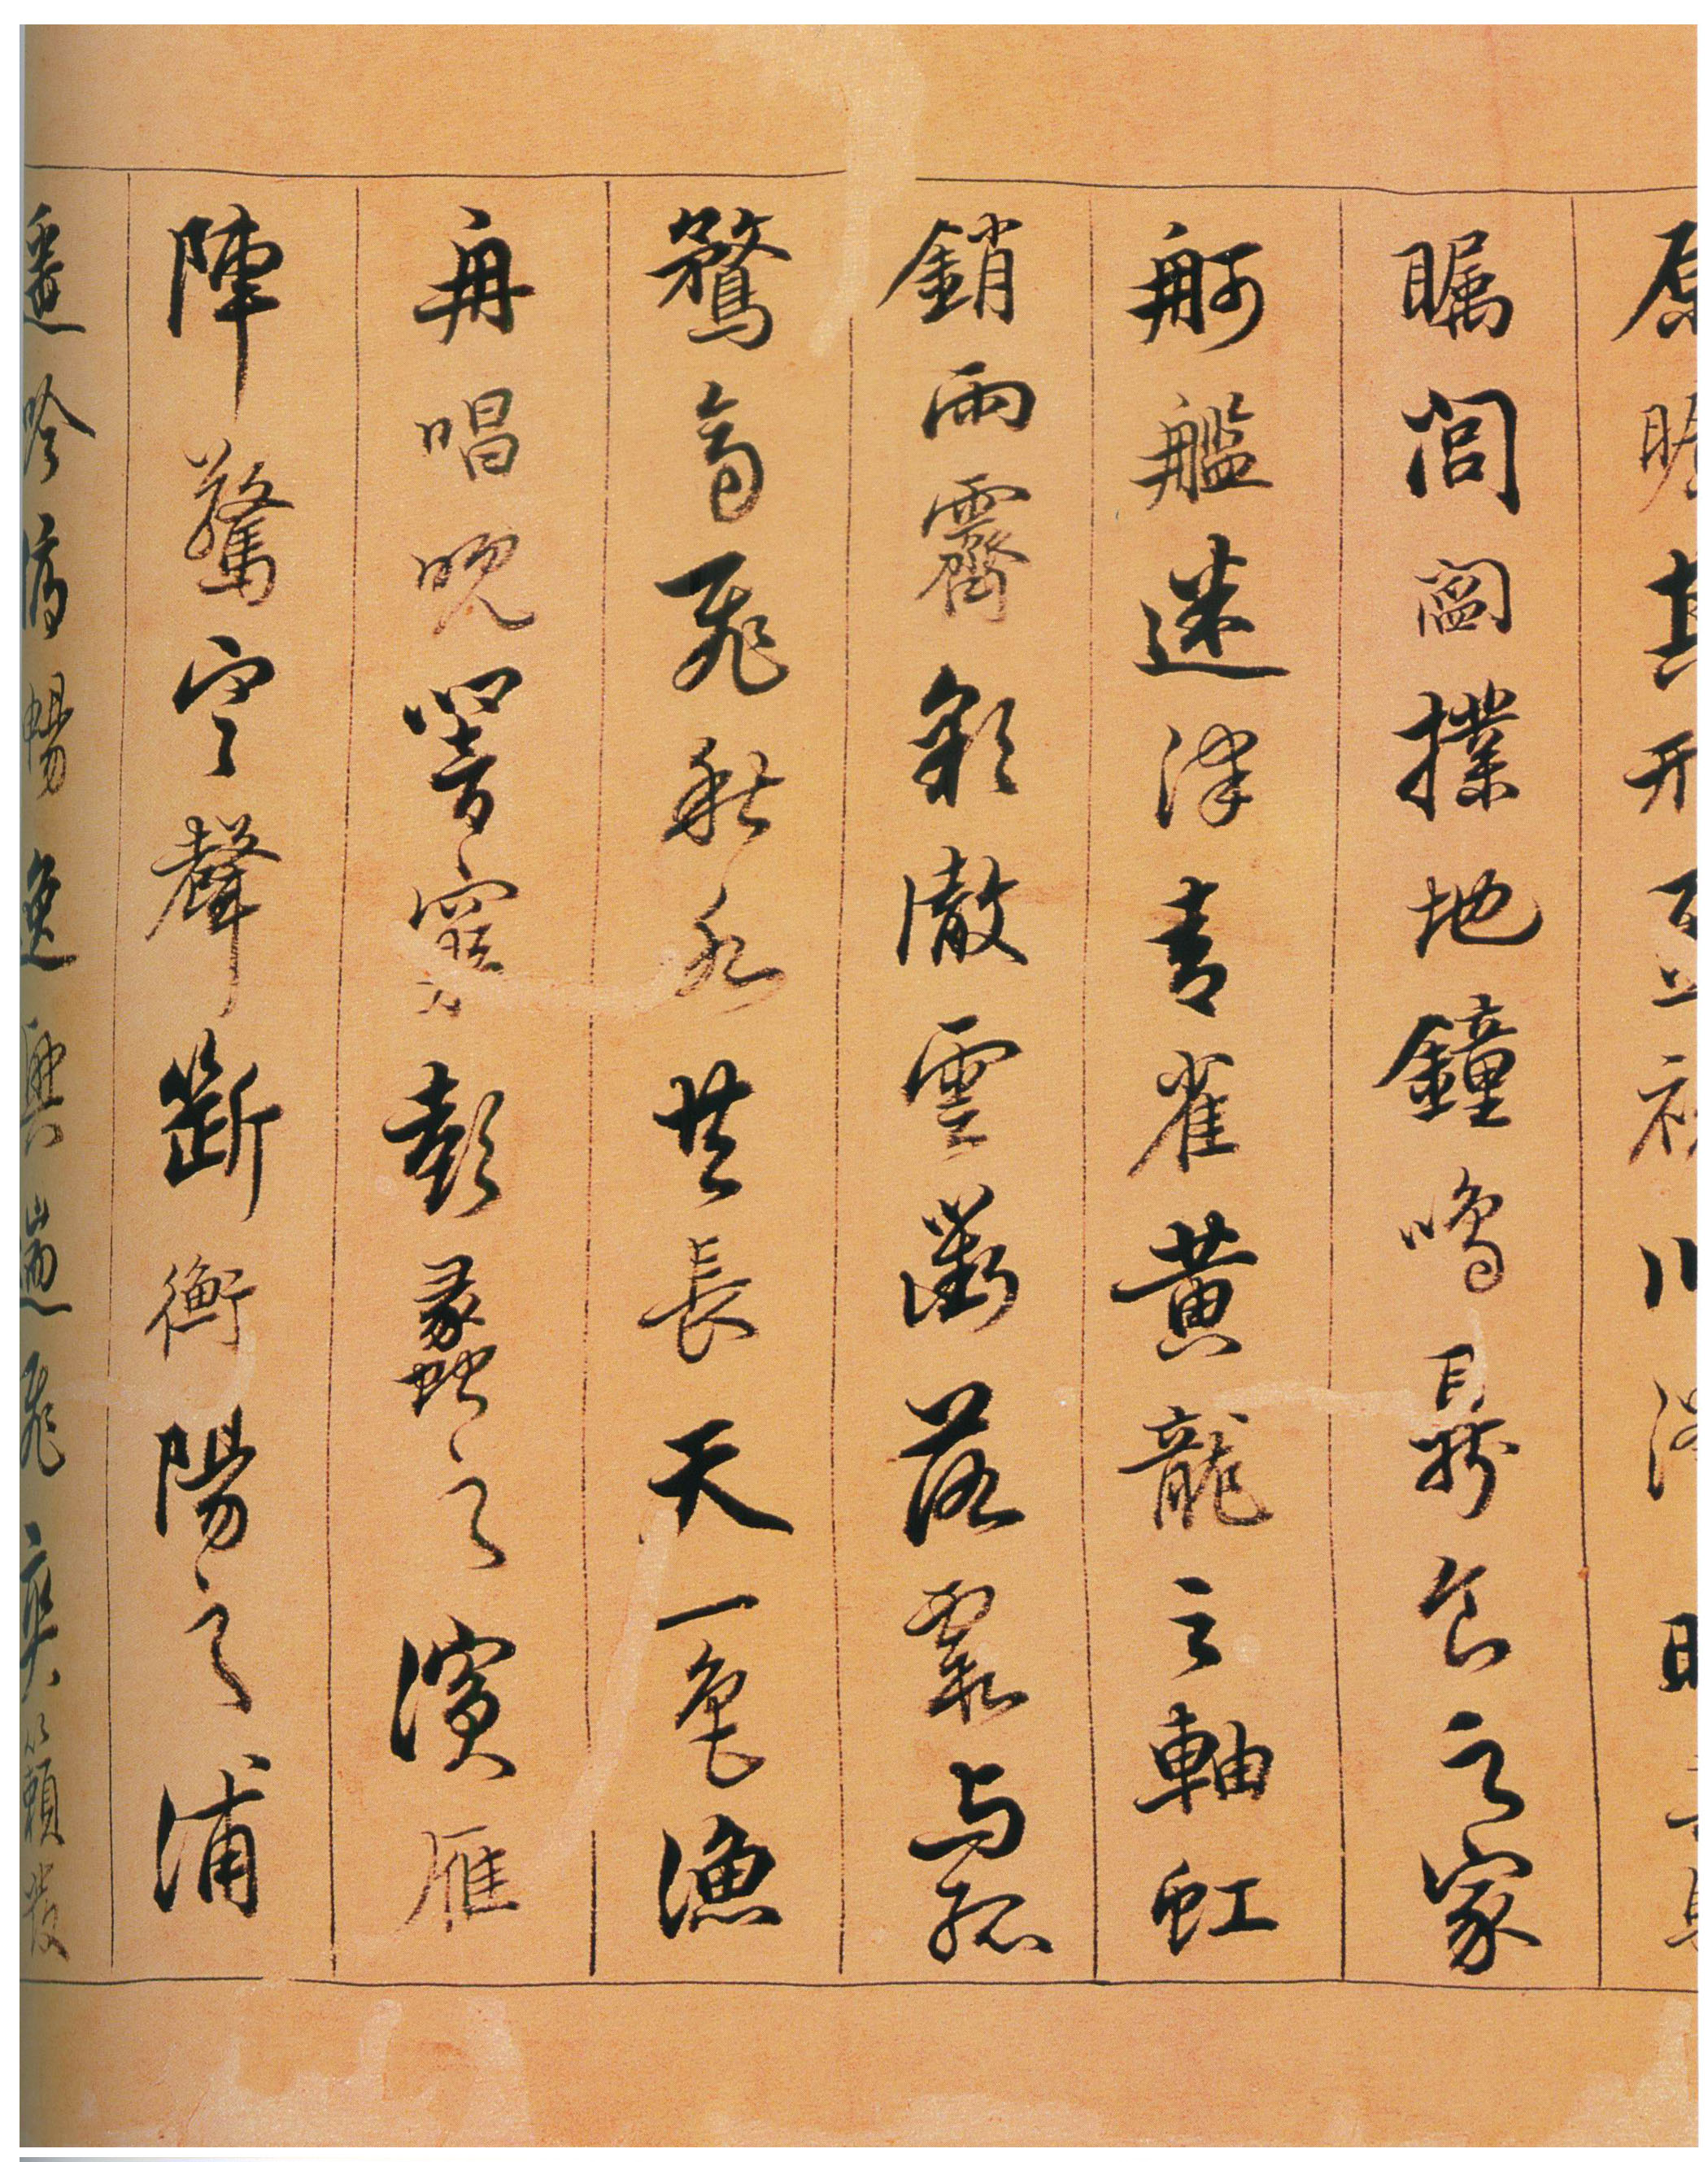 原其川
瞩閭閻撲地鐘鳴鼎食之家
舸艦迷津青雀黄龍之軸虹
銷雨霽彩徹雲衢落霞与孤
鶩齊飛秋水共長天一色漁
舟唱晚響窮彭蠡之濱雁
陣驚寒聲斷衡陽之浦
遥吟俯暢逸興遄飛爽籟發